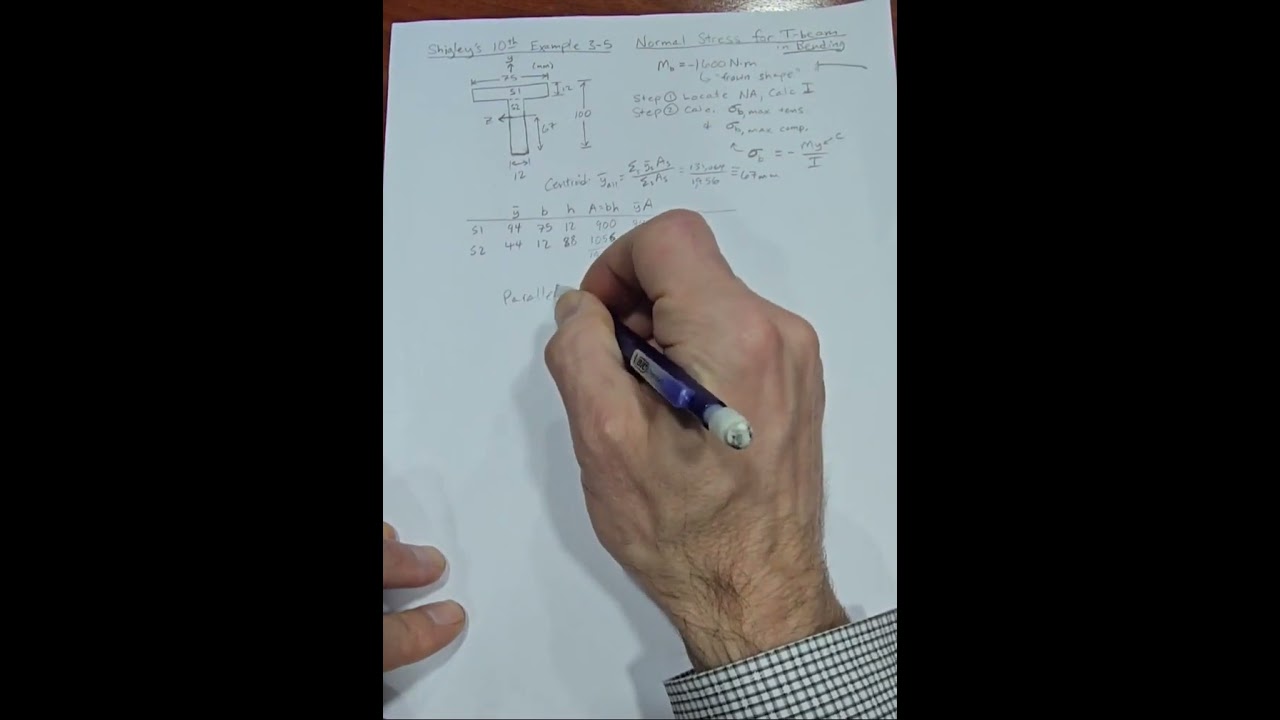 Shigley's 10th Example 3-5
Normal Stress for T-beam
in Bending
y
75 (mm)
S1
12
S2
100
z
67
12
M_b = -1600 N·m
↳ "frown shape"
Step ① Locate NA, Calc I
Step ② Calc. σ_b,max tens.
& σ_b,max comp.
σ_b = - My/I
c
Centroid: ȳ_all = Σ ȳ_s A_s / Σ A_s = /1956 = 67mm
ȳ b h A=bh ȳA
S1 94 75 12 900
S2 44 12 88 1056
Parallel
BIC